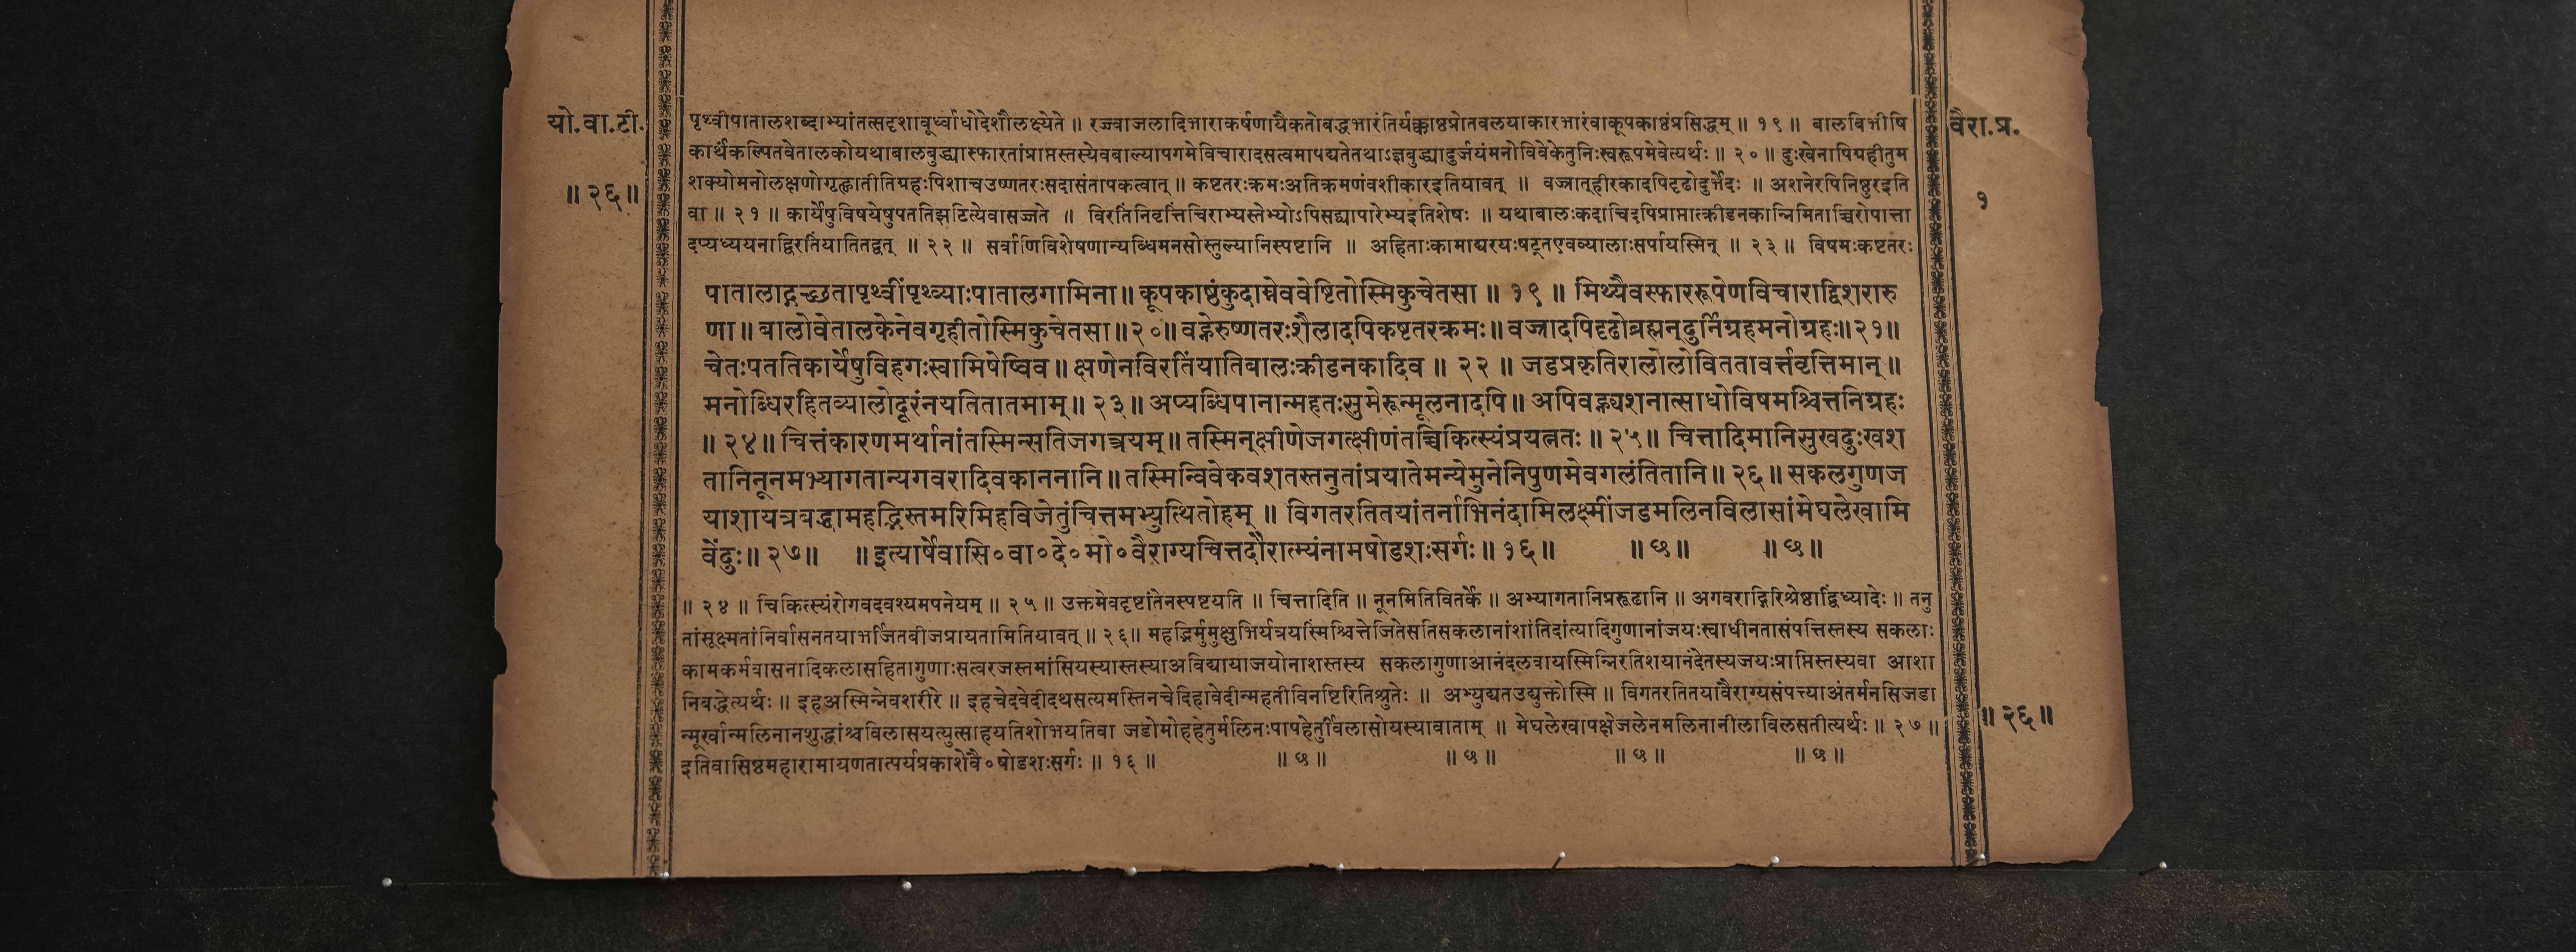 यो.वा.टी.
॥ २६ ॥
पृथ्वीपातालशब्दाभ्यांतत्सदृशावूर्ध्वाधोदेशौलक्ष्येते ॥ रज्ज्वाजलादिभाराकर्षणायैकतोबद्धभारंतिर्यक्काष्ठप्रोतवलयाकारभारंवाकूपकाष्ठंप्रसिद्धम् ॥ १९ ॥ बालबिभीषि
कार्थंकल्पितवेतालकोयथाबालबुद्ध्यास्फारतांप्राप्तस्तस्येवबाल्यापगमेविचारादसत्वमापद्यतेतथाऽज्ञबुद्ध्यादुर्जयंमनोविवेकेतुनिःस्वरूपमेवेत्यर्थः ॥ २० ॥ दुःखेनापिग्रहीतुम
शक्योमनोलक्षणोगृह्णातीतिग्रहःपिशाचउष्णतरःसदासंतापकत्वात् ॥ कष्टतरःक्रमःअतिक्रमणंवशीकारइतियावत् ॥ वज्रात्हीरकादपिदृढोदुर्भेदः ॥ अशनेरपिनिष्ठुरइति
वा ॥ २१ ॥ कार्येषुविषयेषुपततिझटित्येवासज्जते ॥ विरतिंनिवृत्तिंचिराभ्यस्तेभ्योऽपिसद्व्यापारेभ्यइतिशेषः ॥ यथाबालःकदाचिदपिप्राप्तात्क्रीडनकान्निमित्ताच्चिरोपात्ता
दप्यध्ययनाद्विरतिंयातितद्वत् ॥ २२ ॥ सर्वाणिविशेषणान्यब्धिमनसोस्तुल्यानिस्पष्टानि ॥ अहिताःकामाद्यरयःषट्तएवव्यालाःसर्पायस्मिन् ॥ २३ ॥ विषमःकष्टतरः
पातालाद्गच्छतापृथ्वींपृथ्व्याःपातालगामिना ॥ कूपकाष्ठंकुदाम्नेववेष्टितोस्मिकुचेतसा ॥ १९ ॥ मिथ्यैवस्फाररूपेणविचाराद्विशरारु
णा ॥ बालोवेतालकेनेवगृहीतोस्मिकुचेतसा ॥ २० ॥ वह्नेरुष्णतरःशैलादपिकष्टतरक्रमः ॥ वज्रादपिदृढोब्रह्मन्दुर्निग्रहमनोग्रहः ॥ २१ ॥
चेतःपततिकार्येषुविहगःस्वामिषेष्विव ॥ क्षणेनविरतिंयातिबालःक्रीडनकादिव ॥ २२ ॥ जडप्रकृतिरालोलोविततावर्त्तवृत्तिमान् ॥
मनोब्धिरहितव्यालोदूरंनयतितातमाम् ॥ २३ ॥ अप्यब्धिपानान्महतःसुमेरून्मूलनादपि ॥ अपिवह्न्यशनात्साधोविषमश्चित्तनिग्रहः
॥ २४ ॥ चित्तंकारणमर्थानांतस्मिन्सतिजगत्त्रयम् ॥ तस्मिन्क्षीणेजगत्क्षीणंतच्चिकित्स्यंप्रयत्नतः ॥ २५ ॥ चित्तादिमानिसुखदुःखश
तानिनूनमभ्यागतान्यगवरादिवकाननानि ॥ तस्मिन्विवेकवशतस्तनुतांप्रयातेमन्येमुनेनिपुणमेवगलंतितानि ॥ २६ ॥ सकलगुणज
याशायत्रबद्धामहद्भिस्तमरिमिहविजेतुंचित्तमभ्युत्थितोहम् ॥ विगतरतितयांतर्नाभिनंदामिलक्ष्मींजडमलिनविलासांमेघलेखामि
वेंदुः ॥ २७ ॥ ॥ इत्यार्षेवासि॰वा॰दे॰मो॰वैराग्यचित्तदौरात्म्यंनामषोडशःसर्गः ॥ १६ ॥ ॥ छ ॥ ॥ छ ॥
॥ २४ ॥ चिकित्स्यंरोगवदवश्यमपनेयम् ॥ २५ ॥ उक्तमेवदृष्टांतेनस्पष्टयति ॥ चित्तादिति ॥ नूनमितिवितर्के ॥ अभ्यागतानिप्ररूढानि ॥ अगवराद्गिरिश्रेष्ठाद्विंध्यादेः ॥ तनु
तांसूक्ष्मतांनिर्वासनतयाभर्जितबीजप्रायतामितियावत् ॥ २६ ॥ महद्भिर्मुमुक्षुभिर्यत्रयस्मिंश्चित्तेजितेसतिसकलानांशांतिदांत्यादिगुणानांजयःस्वाधीनतासंपत्तिस्तस्य सकलाः
कामकर्मवासनादिकलासहितागुणाःसत्वरजस्तमांसियस्यास्तस्याअविद्यायाजयोनाशस्तस्य सकलागुणाआनंदलवायस्मिन्निरतिशयानंदेतस्यजयःप्राप्तिस्तस्यवा आशा
निबद्धेत्यर्थः ॥ इहअस्मिन्नेवशरीरे ॥ इहचेदवेदीदथसत्यमस्तिनचेदिहावेदीन्महतीविनष्टिरितिश्रुतेः ॥ अभ्युद्यतउद्युक्तोस्मि ॥ विगतरतितयावैराग्यसंपत्त्याअंतर्मनसिजडा
न्मूर्खान्मलिनानशुद्धांश्चविलासयत्युत्साहयतिशोभयतिवा जडोमोहहेतुर्मलिनःपापहेतुर्विलासोयस्यावाताम् ॥ मेघलेखापक्षेजलेनमलिनानीलाविलसतीत्यर्थः ॥ २७ ॥
इतिवासिष्ठमहारामायणतात्पर्यप्रकाशेवै॰षोडशःसर्गः ॥ १६ ॥ ॥ छ ॥ ॥ छ ॥ ॥ छ ॥ ॥ छ ॥
वैरा.प्र.
१
॥ २६ ॥